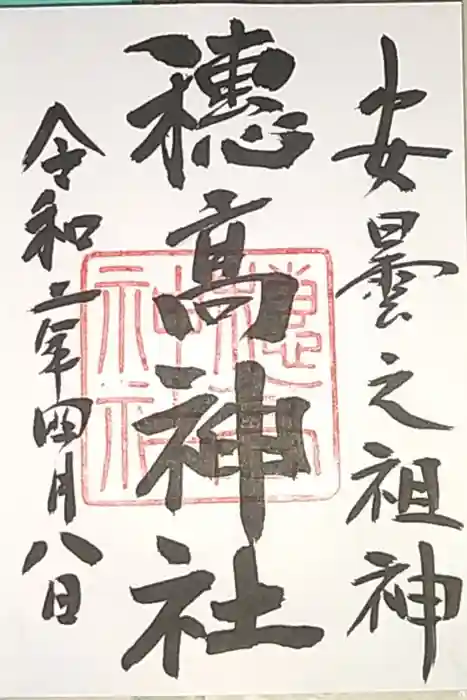 安曇之祖神
穂髙神社
令和二年四月八日
穂高
神社